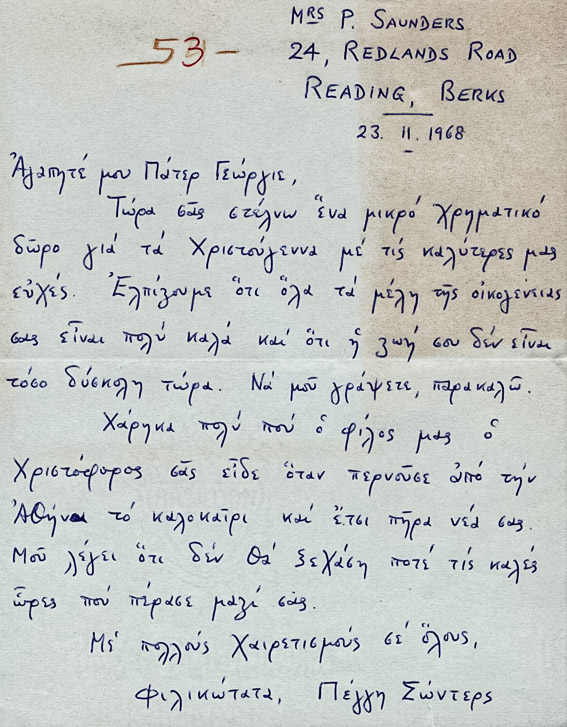 MRS P. SAUNDERS
53-
24, REDLANDS ROAD
READING, BERKS
23. 11. 1968
Ἀγαπητέ μου Πάτερ Γεώργιε,
Τώρα σᾶς στέλνω ἕνα μικρό χρηματικό
δῶρο γιά τά Χριστούγεννα μέ τίς καλύτερες μας
εὐχές. Ἐλπίζουμε ὅτι ὅλα τά μέλη τῆς οἰκογένειας
σας εἶναι πολύ καλά καί ὅτι ἡ ζωή σου δέν εἶναι
τόσο δύσκολη τώρα. Νά μοῦ γράψετε, παρακαλῶ.
Χάρηκα πολύ πού ὁ φίλος μας ὁ
Χριστόφορος σᾶς εἶδε ὅταν περνοῦσε ἀπό τήν
Ἀθήνα τό καλοκαῖρι καί ἔτσι πῆρα νέα σας.
Μοῦ λέγει ὅτι δέν θά ξεχάση ποτέ τίς καλές
ὧρες πού πέρασε μαζί σας.
Μέ πολλούς χαιρετισμούς σέ ὅλους,
Φιλικώτατα, Πέγγη Σώντερς